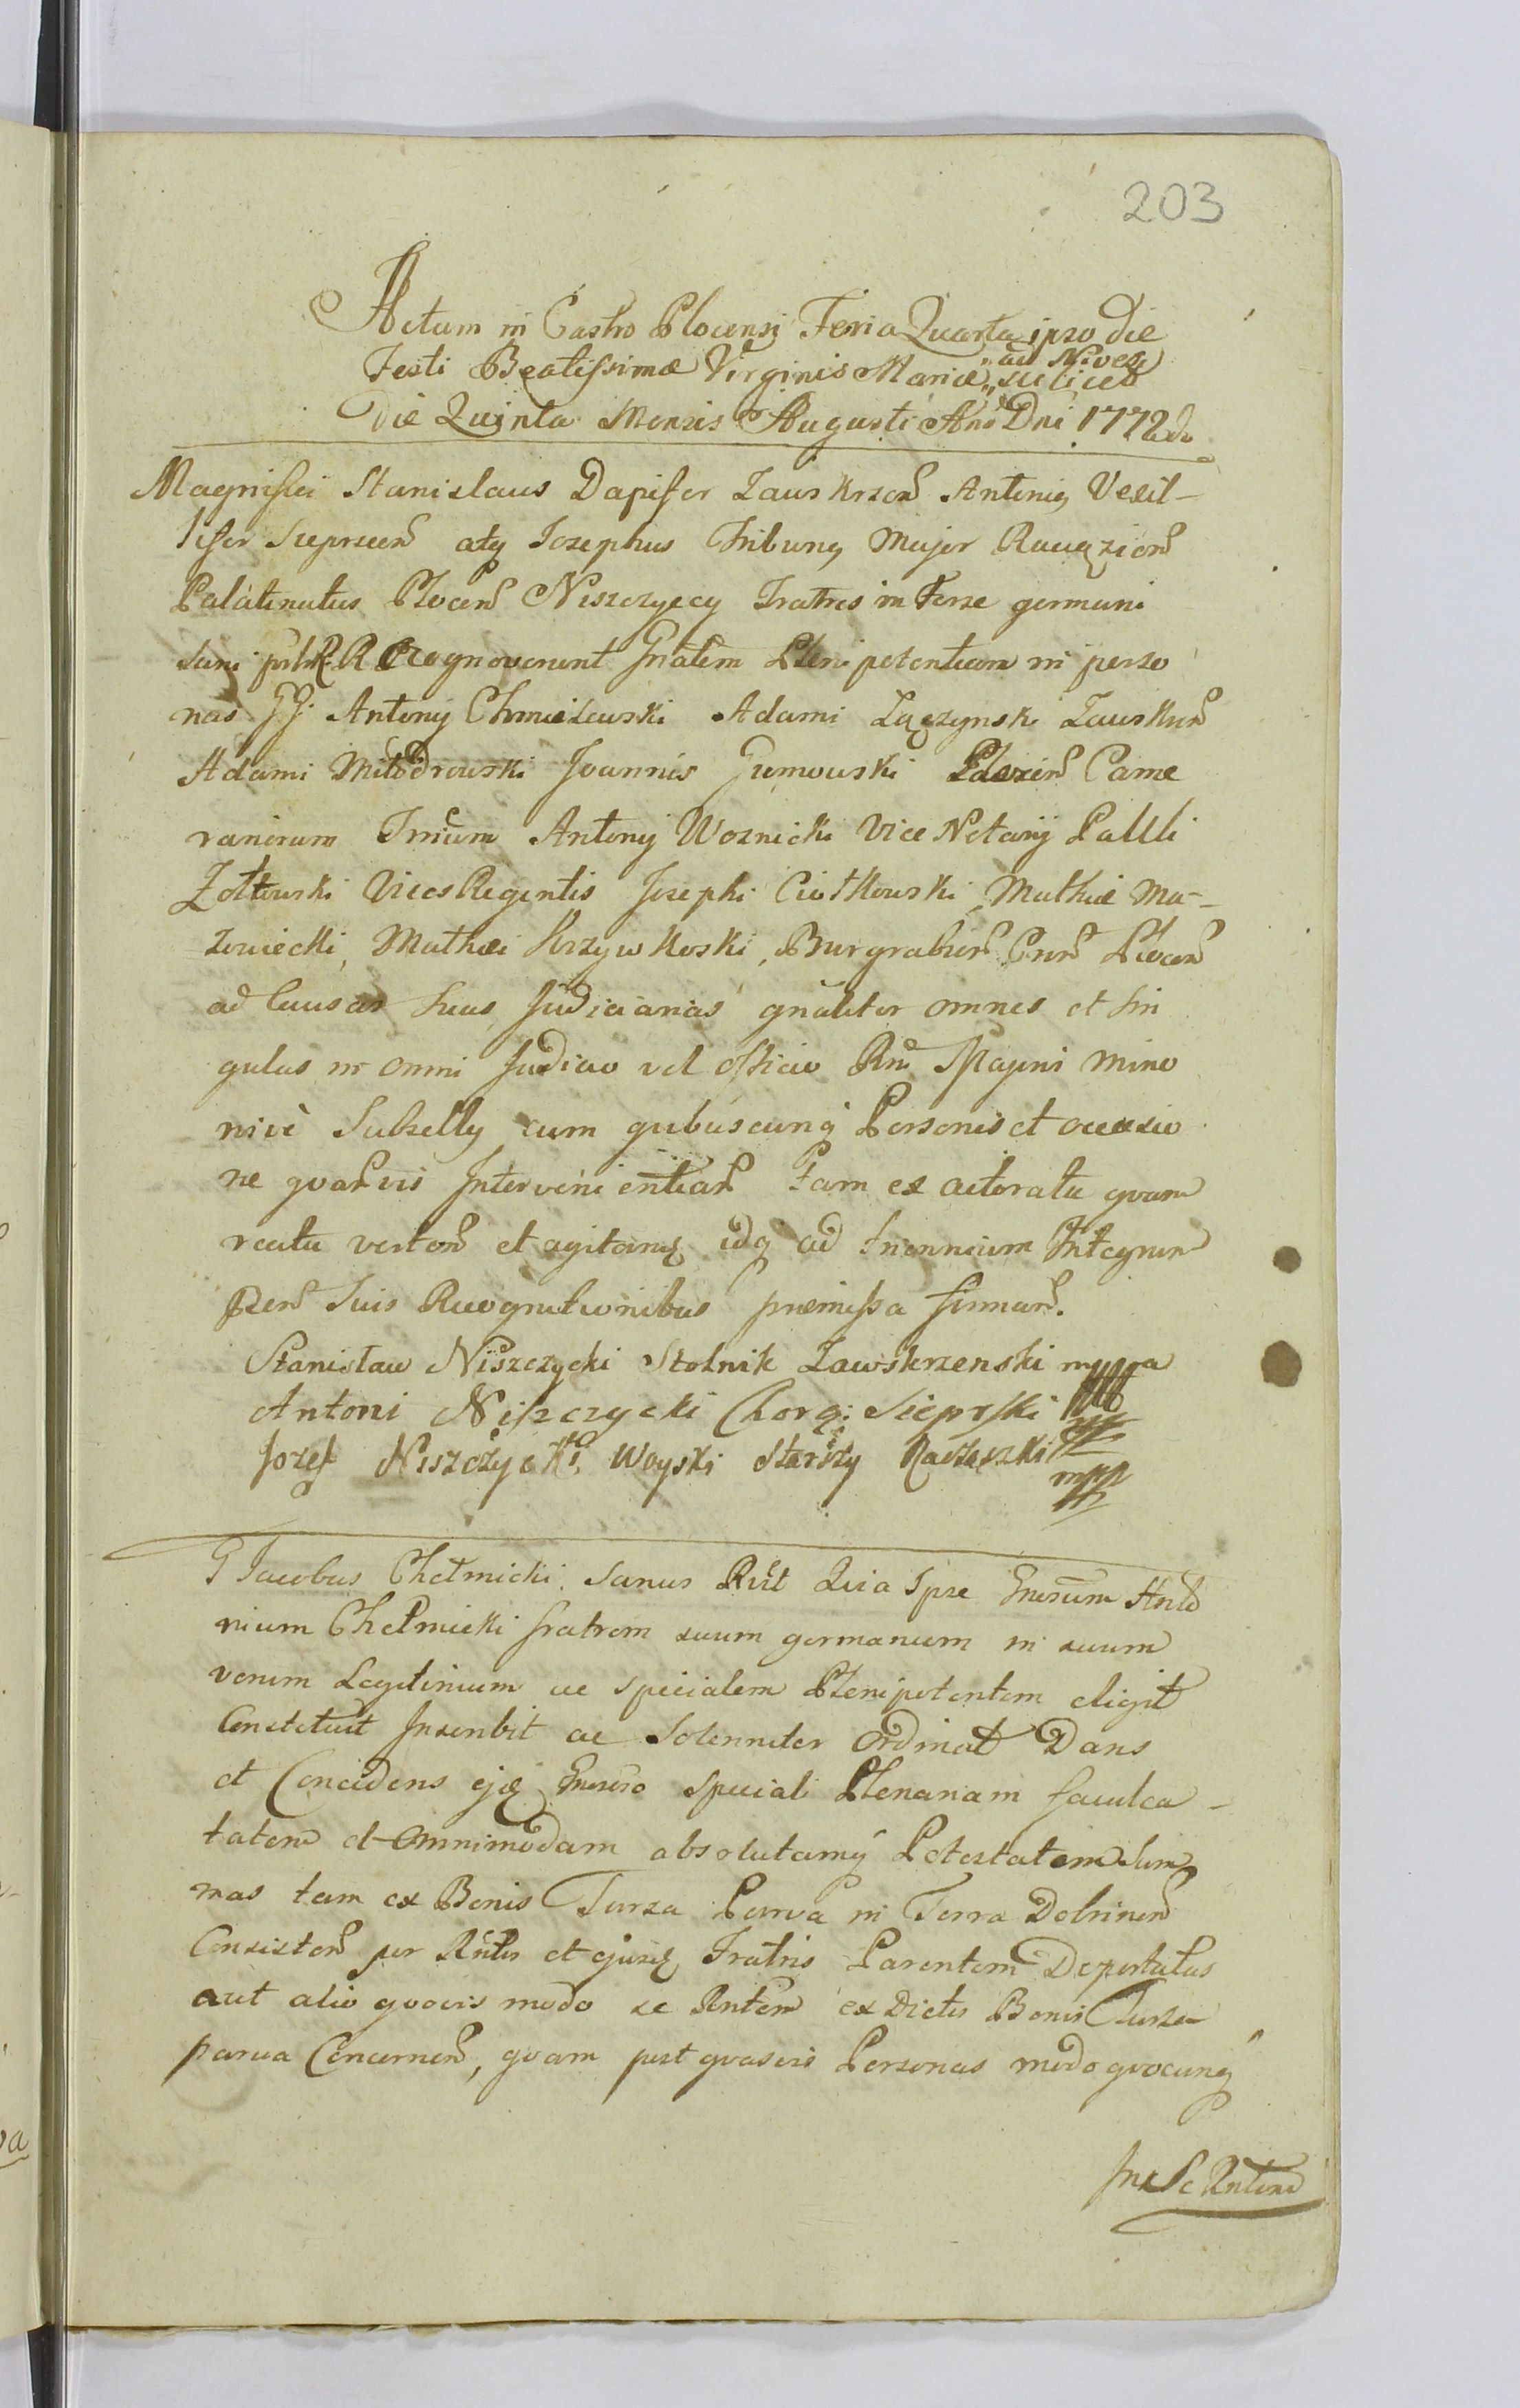 203
Actum in Castro Plocensi Feria Quarta ipso die
Festi Beatissimæ Virginis Mariæ „ad Nives„ scilicet
Die Quinta Mensis Augusti Ano Dni 1772do
Magnifici Stanislaus Dapifer Zauskrzeń Antonig Vexil-
lifer Sieprceń atq Josephus Tribung Major Raciązień
Palatinatus Ploceń Niszczyccy Fratres inter se germani
Sani Recognoverunt Gnałem Plenipotentiam in perso
nas GG. Antonij Chmielewski Adami Łączynski Zauskrń
Adami Młodzrowski Joannis Gumowski Came
rariorum Antonij Woznicki Vice Notarij Palłli
Zołtowski Vices Regentis Josephi Ciołkowski Mathiæ Ma-
zowiecki, Mathei Krzywkoski, Burgrabiorń Crń Płoceń
ad Causas suas Judiciarias gnaliter omnes et sin
gulas in omni Judicio vel officio Rni Magni mino
risve Subselly cum quibuscunq Personis et occasio
ne quarvis Intervenientiarń Tam ex actoratu quam
reatu verteń et agitanḑ idq ad Triennium Integrum
Suis Recognitionibus præmissa firmarń.
Stanisław Niszczycki Stolnik Zawskrzenski mppa
Antoni Niszczycki Chorą: Sieprski mpp
Jozef Niszczycki Woyski Starszy Raciązki
mpp
G Jacobus Chełmicki Sanus Rrćt Quia Ipse Gnerosum Anto
nium Chełmicki fratrem suum germanum in suum
verum Legitimum ac specialem Plenipotentem eligit
Constituit Inscribit ac Solenniter Ordinat Dans
et Concedens ejḑ Gneroso speciali Plenariam facul{c}a-
tatem et Omnimodam absolutamq Potestatem Sum
mas tam ex Bonis Turza Parva in Terra Dobrineń
Consisteń per Rntis et ejusḑ Fratris Parentem Deportatas
aut alio quovis modo se Rntem ex Dictis Bonis Turza
parva Concerneń, quam post quasvis Personas modo quocunq
In Se Rntem